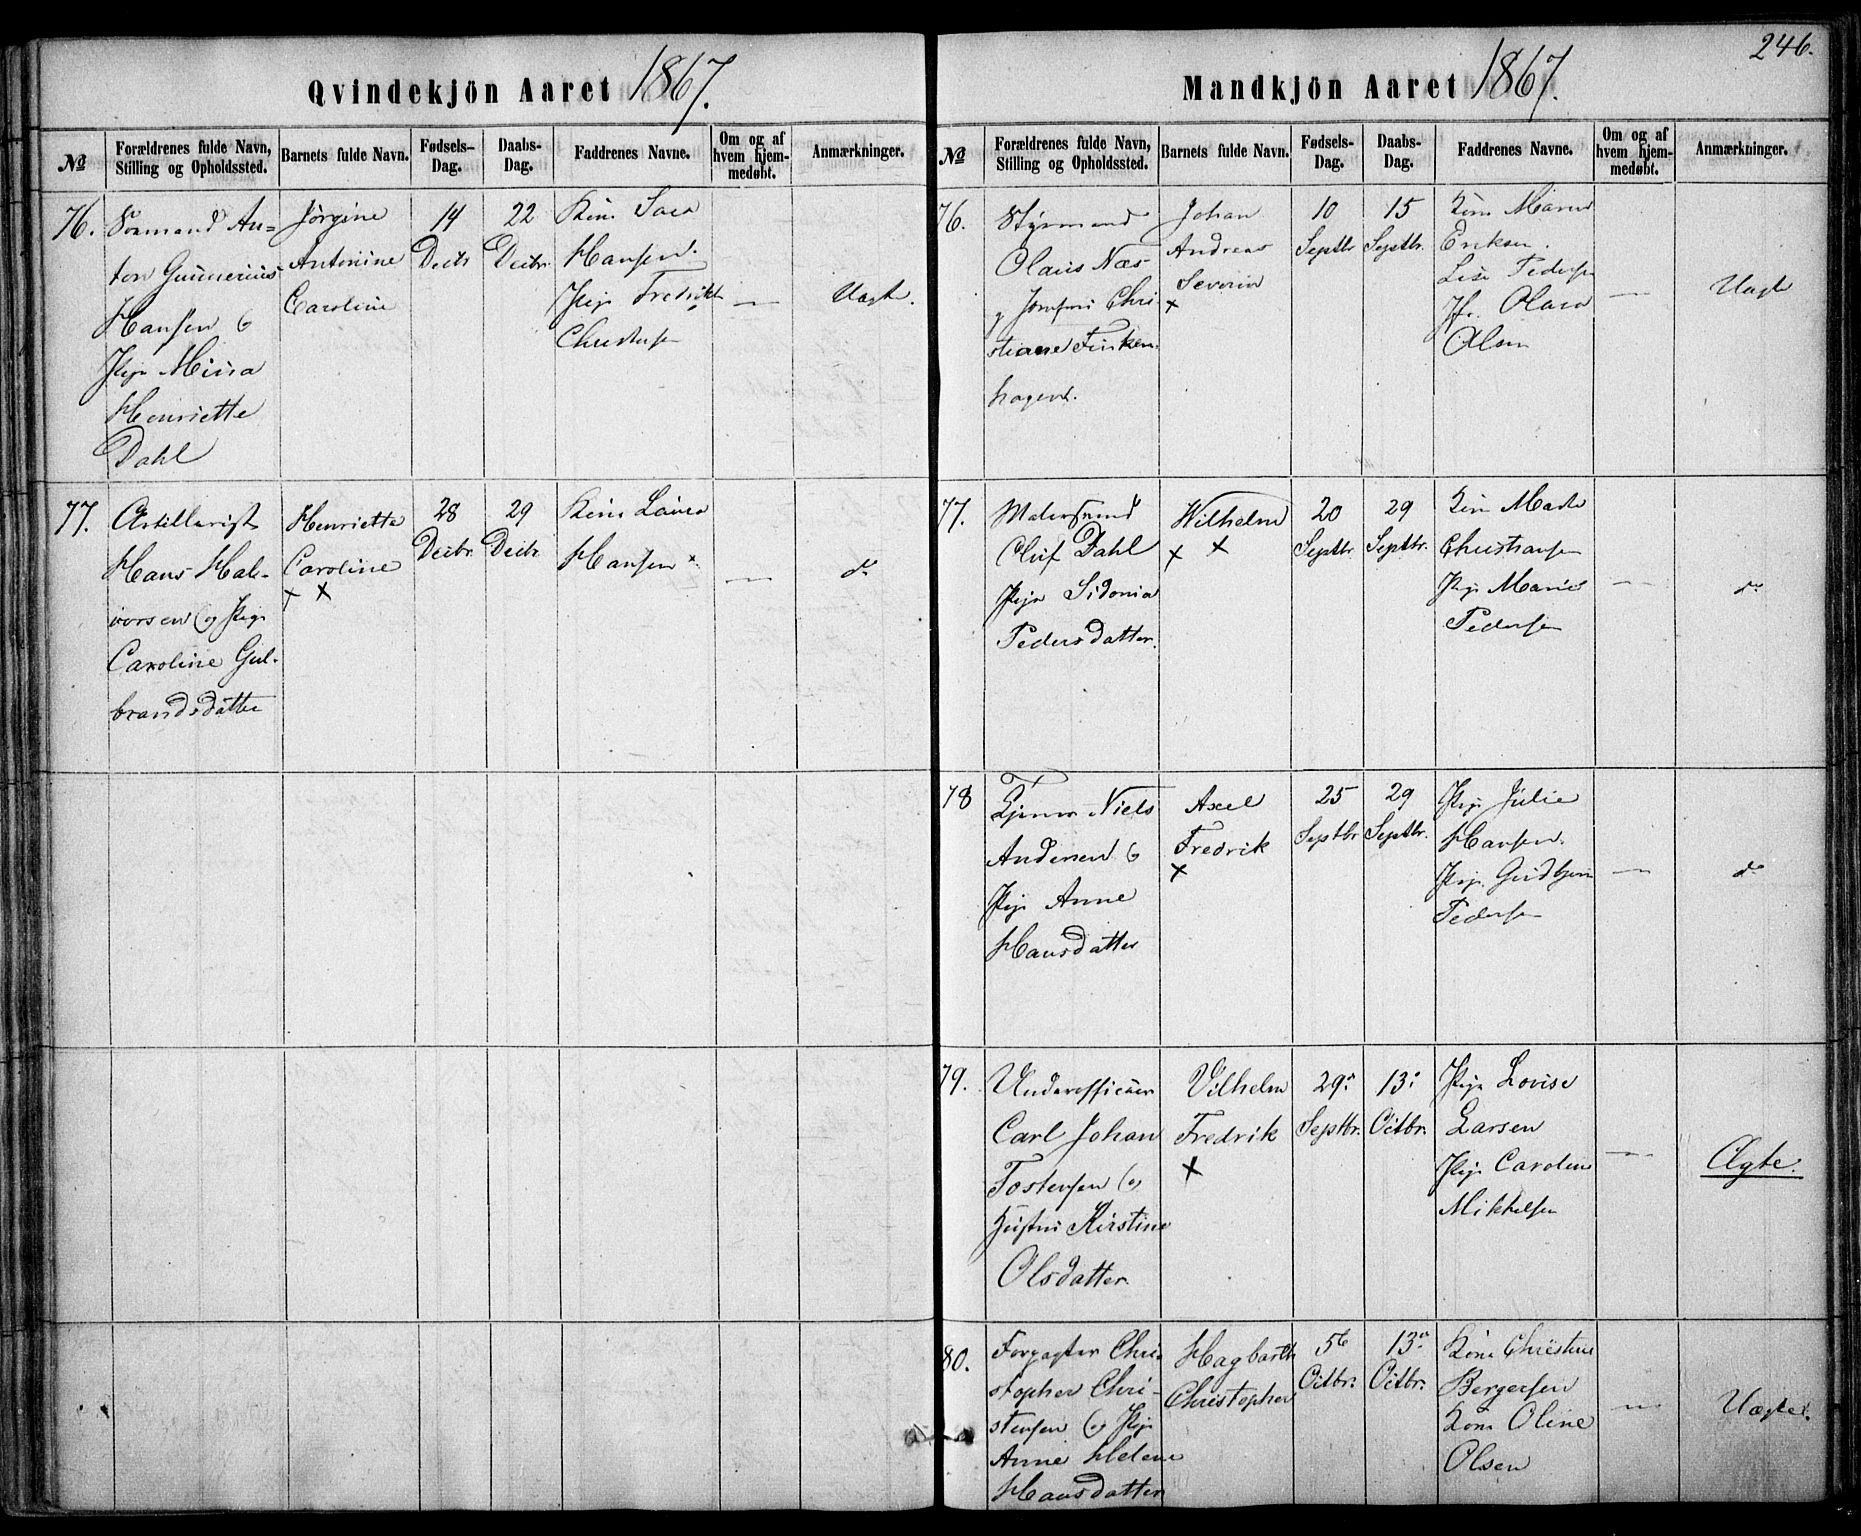 246.
Qvindekjön Aaret 1867.
№
Forældrenes fulde Navn, Stilling og Opholdssted.
Barnets fulde Navn.
Fødsels-Dag.
Daabs-Dag.
Faddrenes Navne.
Om og af hvem hjem-medøbt.
Anmærkninger.
76.
Sømand An-
ton Gunnerius
Hansen &
Pige Mina
Henriette
Dahl
Jörgine
Antonine
Caroline
14
Decbr
22
Decbr.
Kone Sara
Hansen.
Pige Fredrikke
Christensen
—
Uægte.
77.
Artillerist
Hans Hal-
vorsen og Pige
Caroline Gul-
brandsdatter
Henriette
Caroline
x x
28
Decbr.
29
Decbr
Kone Laura
Hansen
—
do
Mandkjön Aaret 1867.
№
Forældrenes fulde Navn, Stilling og Opholdssted.
Barnets fulde Navn.
Fødsels-Dag.
Daabs-Dag.
Faddrenes Navne.
Om og af hvem hjem-medøbt.
Anmærkninger.
76.
Styrmand
Olaus Næs
g Jomfru Chri-
stiane Finken-
hagen.
Johan
Andreas
Severin
x
10
Septbr
15
Septbr.
Kone Maren
Eriksen.
Lise Pedersen
Jfr. Olava
Olsen
—
Uægte
77.
Malersvend
Oluf Dahl
Pige Sidonia
Pedersdatter.
Wilhelm
x x
20
Septbr.
29
Septbr.
Kone Marte
Christiansen
Pige Marie
Pedersen
—
do
78
Tjener Niels
Andersen &
Pige Anne
Hansdatter
Axel
Fredrik
x
25
Septbr
29
Septbr.
Pige Julie
Hansen.
Pige Gudbjør
Pedersen
—
do
79.
Underofficier
Carl Johan
Tostensen og
Hustru Kirstine
Olsdatter.
Vilhelm
Fredrik
x
29.
Septbr.
13.
Octbr.
Pige Lovise
Larsen
Pige Caroline
Mikkelsen
—
Ægte.
80.
Forpagter Chri-
stopher Chri-
stensen og Pige
Anne Helene
Hansdatter
Hagbarth
Christopher
5te
Octbr.
13.
Octbr.
Kone Christine
Bergersen
Kone Oline
Olsen
—
Uægte.